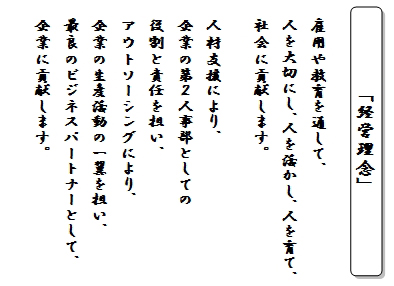 「経営理念」
雇用や教育を通して、
人を大切にし、人を活かし、人を育て、
社会に貢献します。
人材支援により、
企業の第２人事部としての
役割と責任を担い、
アウトソーシングにより、
企業の生産活動の一翼を担い、
最良のビジネスパートナーとして、
企業に貢献します。